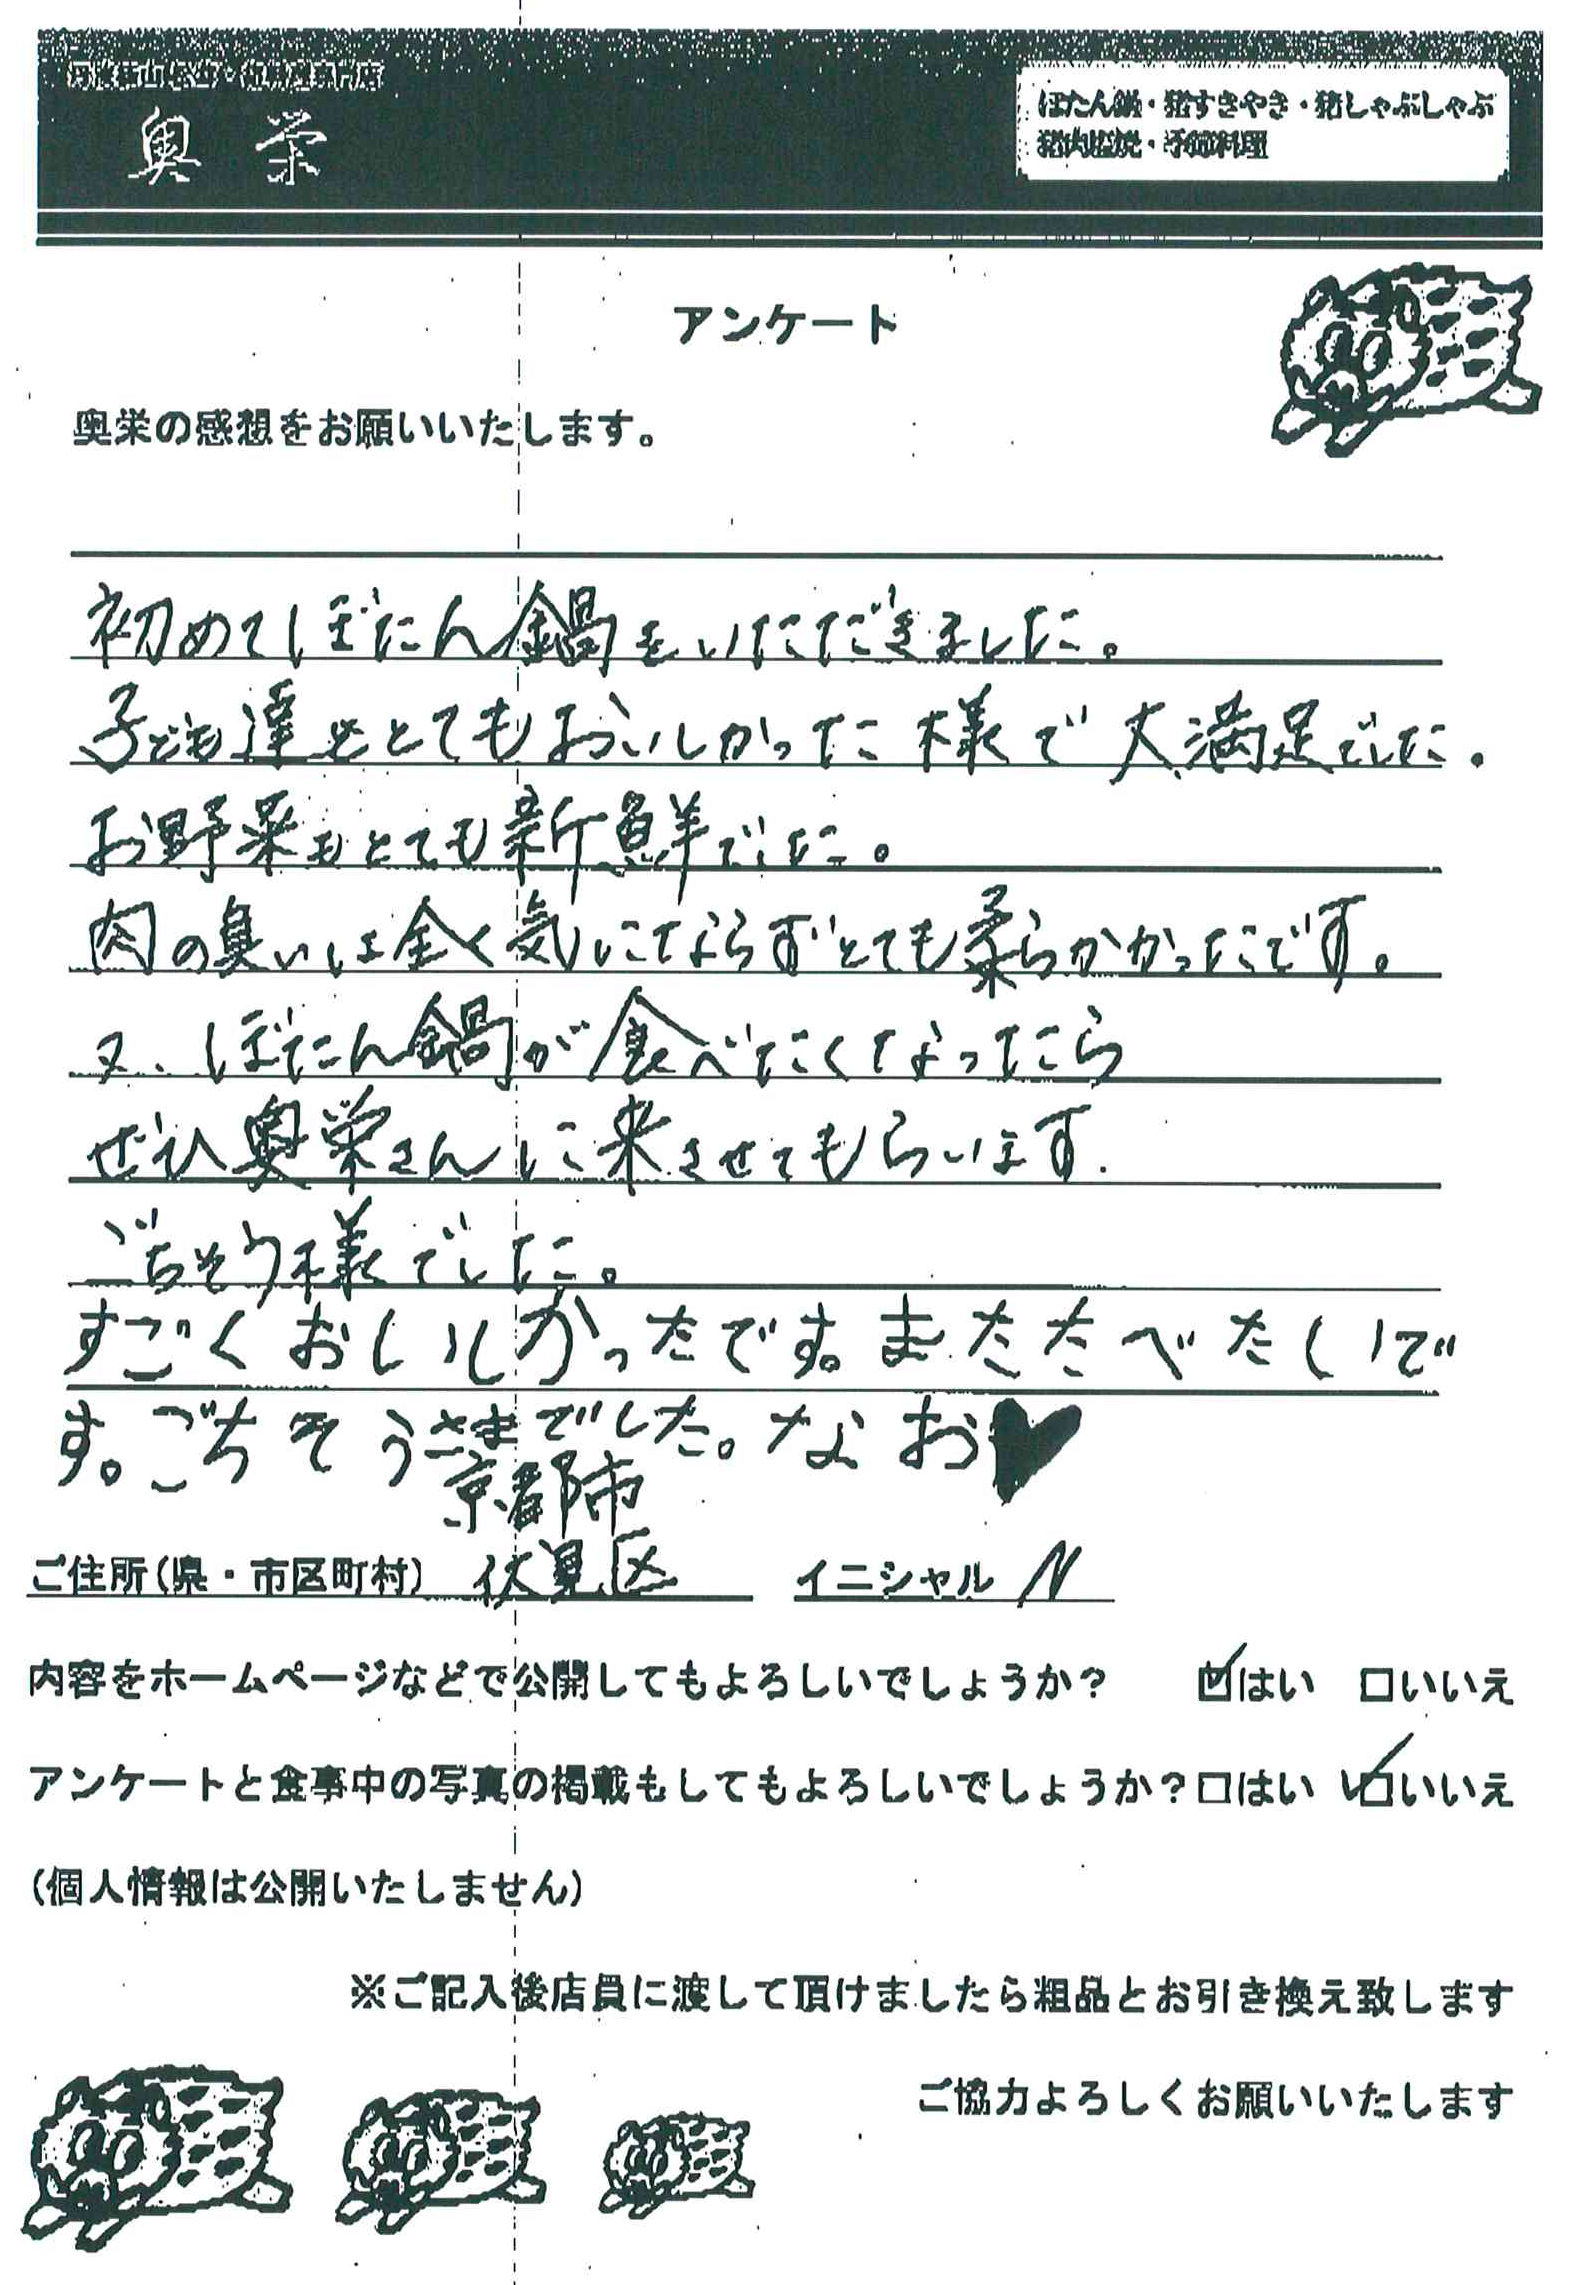 奥栄
ぼたん鍋・猪すきやき・猪しゃぶしゃぶ
猪肉塩焼・季節料理
アンケート
奥栄の感想をお願いいたします。
初めてぼたん鍋をいただきました。
子ども達もとてもおいしかった様で大満足でした。
お野菜もとても新鮮でした。
肉の臭いは全く気にならずとても柔らかかったです。
又、ぼたん鍋が食べたくなったら
ぜひ奥栄さんに来させてもらいます.
ごちそう様でした。
すごくおしいしかったです。またたべたいで
す。ごちそうさまでした。なお♥
京都市
ご住所(県・市区町村) 伏見区 イニシャル N
内容をホームページなどで公開してもよろしいでしょうか? ☑はい □いいえ
アンケートと食事中の写真の掲載もしてもよろしいでしょうか?□はい ☑いいえ
(個人情報は公開いたしません)
※ご記入後店員に渡して頂けましたら粗品とお引き換え致します
ご協力よろしくお願いいたします